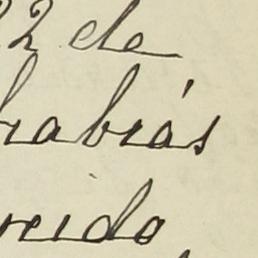 22 de
habrás
reido